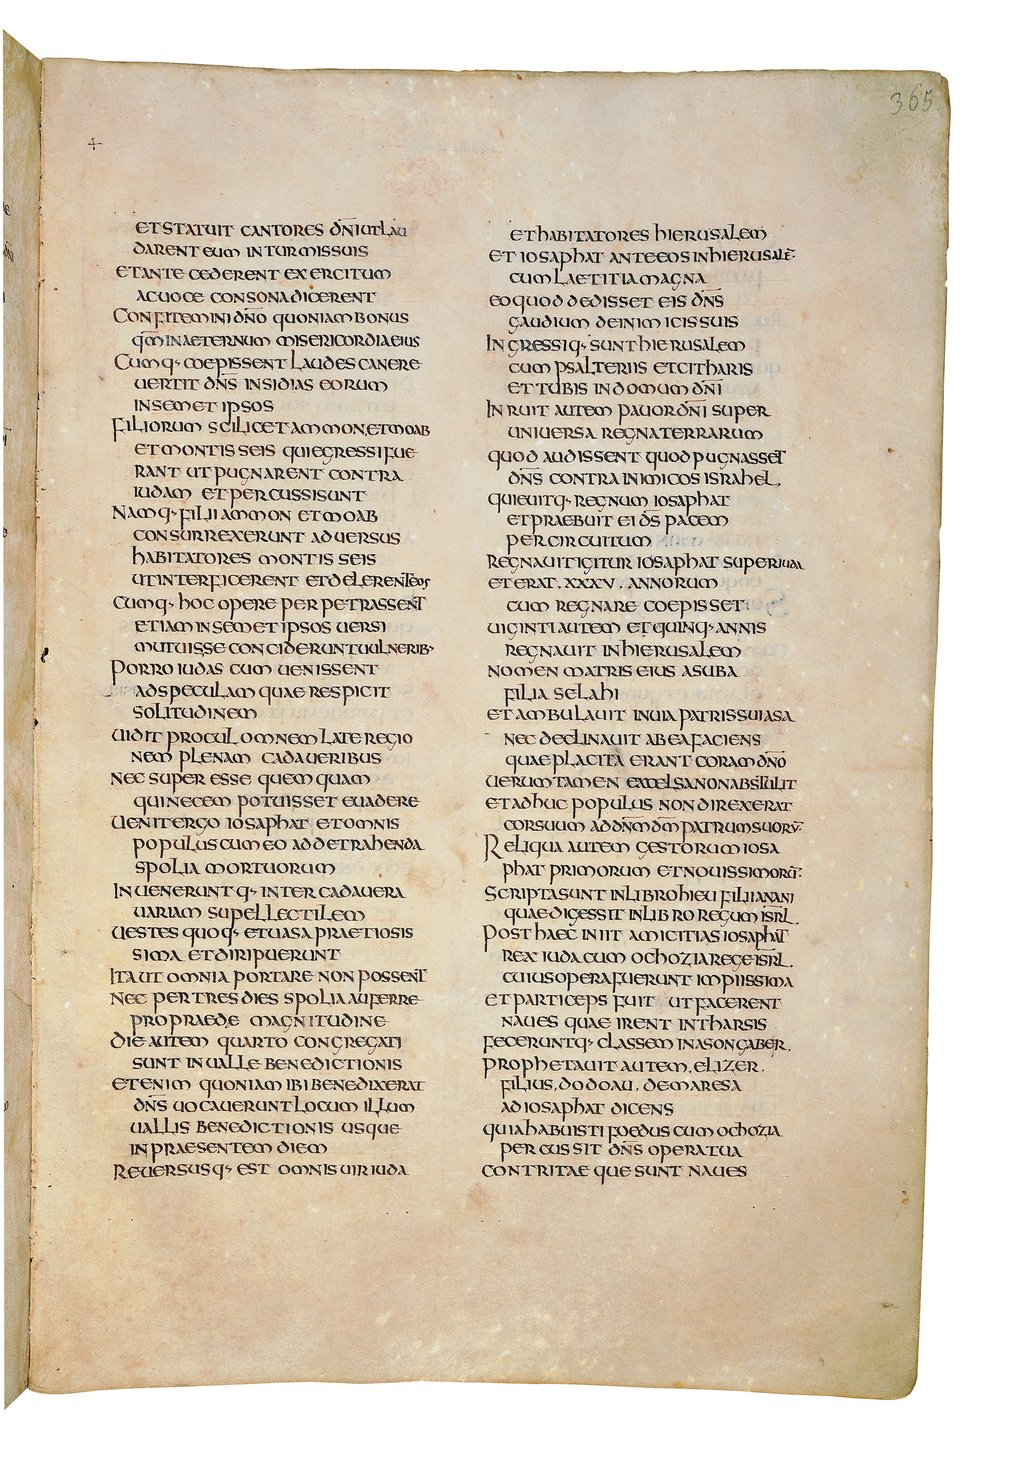 365
+
ET STATUIT CANTORES DN̄I UT LAU
DARENT EUM IN TURMIS SUIS
ET ANTECEDERENT EXERCITUM
AC UOCE CONSONA DICERENT
CONFITEMINI DN̄O QUONIAM BONUS
QM̄ IN AETERNUM MISERICORDIA EIUS
CUMQ· COEPISSENT LAUDES CANERE
UERTIT DN̄S INSIDIAS EORUM
IN SEMET IPSOS
FILIORUM SCILICET AMMON, ET MOAB
ET MONTIS SEIS QUI EGRESSI FUE
RANT UT PUGNARENT CONTRA
IUDAM ET PERCUSSI SUNT
NAMQ· FILII AMMON ET MOAB
CONSURREXERUNT ADUERSUS
HABITATORES MONTIS SEIS
UT INTERFICERENT ET DELERENT EOS
CUMQ· HOC OPERE PERPETRASSENT
ETIAM IN SEMET IPSOS UERSI
MUTUIS SE CONCIDERUNT UULNERIB·
PORRO IUDAS CUM UENISSENT
AD SPECULAM QUAE RESPICIT
SOLITUDINEM
UIDIT PROCUL OMNEM LATE REGIO
NEM PLENAM CADAUERIBUS
NEC SUPERESSE QUEMQUAM
QUI NECEM POTUISSET EUADERE
UENIT ERGO IOSAPHAT ET OMNIS
POPULUS CUM EO AD DETRAHENDA
SPOLIA MORTUORUM
INUENERUNTQ· INTER CADAUERA
UARIAM SUPELLECTILEM
UESTES QUOQ· ET UASA PRAETIOSIS
SIMA ET DIRIPUERUNT
ITA UT OMNIA PORTARE NON POSSENT
NEC PER TRES DIES SPOLIA AUFERRE
PRO PRAEDE MAGNITUDINE
DIE AUTEM QUARTO CONGREGATI
SUNT IN UALLE BENEDICTIONIS
ETENIM QUONIAM IBI BENEDIXERAT
DN̄S UOCAUERUNT LOCUM ILLUM
UALLIS BENEDICTIONIS USQUE
IN PRAESENTEM DIEM
REUERSUSQ· EST OMNIS UIR IUDA
ET HABITATORES HIERUSALEM
ET IOSAPHAT ANTE EOS IN HIERUSALĒ·
CUM LAETITIA MAGNA
EO QUOD DEDISSET EIS DN̄S
GAUDIUM DE INIMICIS SUIS
INGRESSIQ· SUNT HIERUSALEM
CUM PSALTERIIS ET CITHARIS
ET TUBIS IN DOMUM DN̄I
INRUIT AUTEM PAUOR DN̄I SUPER
UNIUERSA REGNA TERRARUM
QUOD AUDISSENT QUOD PUGNASSET
DN̄S CONTRA INIMICOS ISRAHEL.
QUIEUITQ· REGNUM IOSAPHAT
ET PRAEBUIT EI DS̄ PACEM
PER CIRCUITUM
REGNAUIT IGITUR IOSAPHAT SUPER IUDA
ET ERAT. XXXV. ANNORUM
CUM REGNARE COEPISSET·
UIGINTI AUTEM ET QUINQ· ANNIS
REGNAUIT IN HIERUSALEM
NOMEN MATRIS EIUS ASUBA
FILIA SELAHI
ET AMBULAUIT IN UIA PATRIS SUI ASA
NEC DECLINAUIT AB EA FACIENS
QUAE PLACITA ERANT CORAM DN̄O
UERUMTAMEN EXCELSA NON ABSTULIT
ET ADHUC POPULUS NON DIREXERAT
COR SUUM AD DN̄M DM̄ PATRUM SUORŪ·
RELIQUA AUTEM GESTORUM IOSA
PHAT PRIMORUM ET NOUISSIMORŪ·
SCRIPTA SUNT IN LIBRO HIEU FILII ANANI
QUAE DIGESSIT IN LIBRO REGUM ISRL̄.
POST HAEC INIIT AMICITIAS IOSAPHAT
REX IUDA CUM OCHOZIA REGE ISRL̄.
CUIUS OPERA FUERUNT IMPIISSIMA
ET PARTICEPS FUIT UT FACERENT
NAUES QUAE IRENT IN THARSIS
FECERUNTQ· CLASSEM IN ASONGABER.
PROPHETAUIT AUTEM. ELIZER.
FILIUS. DODOAU. DE MARESA
AD IOSAPHAT DICENS
QUIA HABUISTI FOEDUS CUM OCHOZIA
PERCUSSIT DN̄S OPERA TUA
CONTRITAEQUE SUNT NAUES